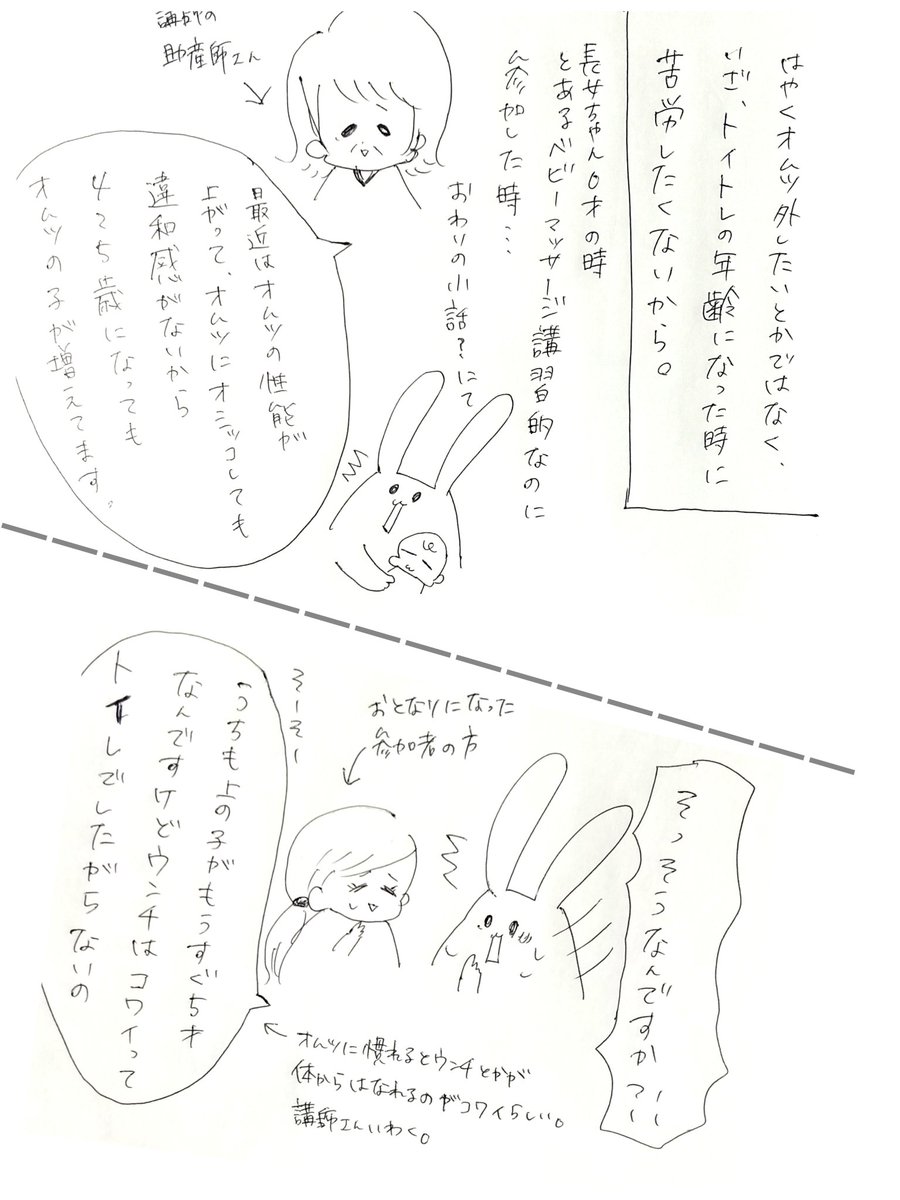 はやくオムツ外したいとかではなく、
いざ、トイトレの年齢になった時に
苦労したくないから。
長女ちゃん0才の時
とあるベビーマッサージ講習的なのに
参加した時…
おわりの小話?にて
講師の
助産師さん
最近はオムツの性能が
上がって、オムツにオシッコしても
違和感がないから
4で5歳になっても
オムツの子が増えてます。
そっそうなんですか?!!
おとなりになった
参加者の方
そーそー
うちも上の子がもうすぐ5才
なんですけどウンチはコワイって
トイレでしたがらないの
オムツに慣れるとウンチとかが
体からはなれるのがコワイらしい。
講師さんいわく。